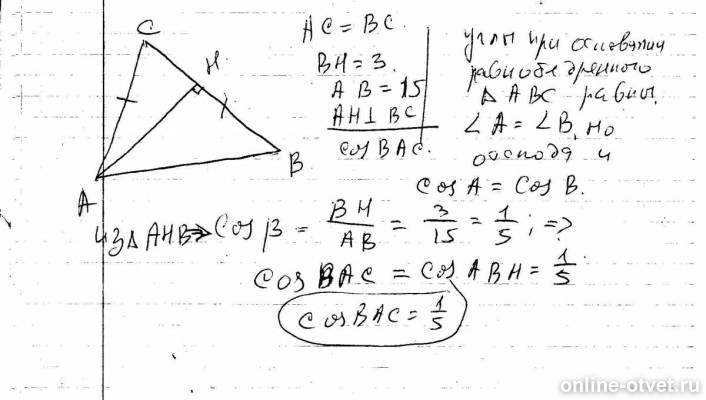 C
H
A
B
AC = BC
BH = 3.
AB = 15
AH⊥BC
cos BAC.
углы при основании
равнобедренного
△ ABC равны.
∠A = ∠B, но
и
cos A = cos B.
из △AHB ⇒ cos β = BH/AB = 3/15 = 1/5 ; ⇒
cos BAC = cos ABH = 1/5
cos BAC = 1/5
online-otvet.ru